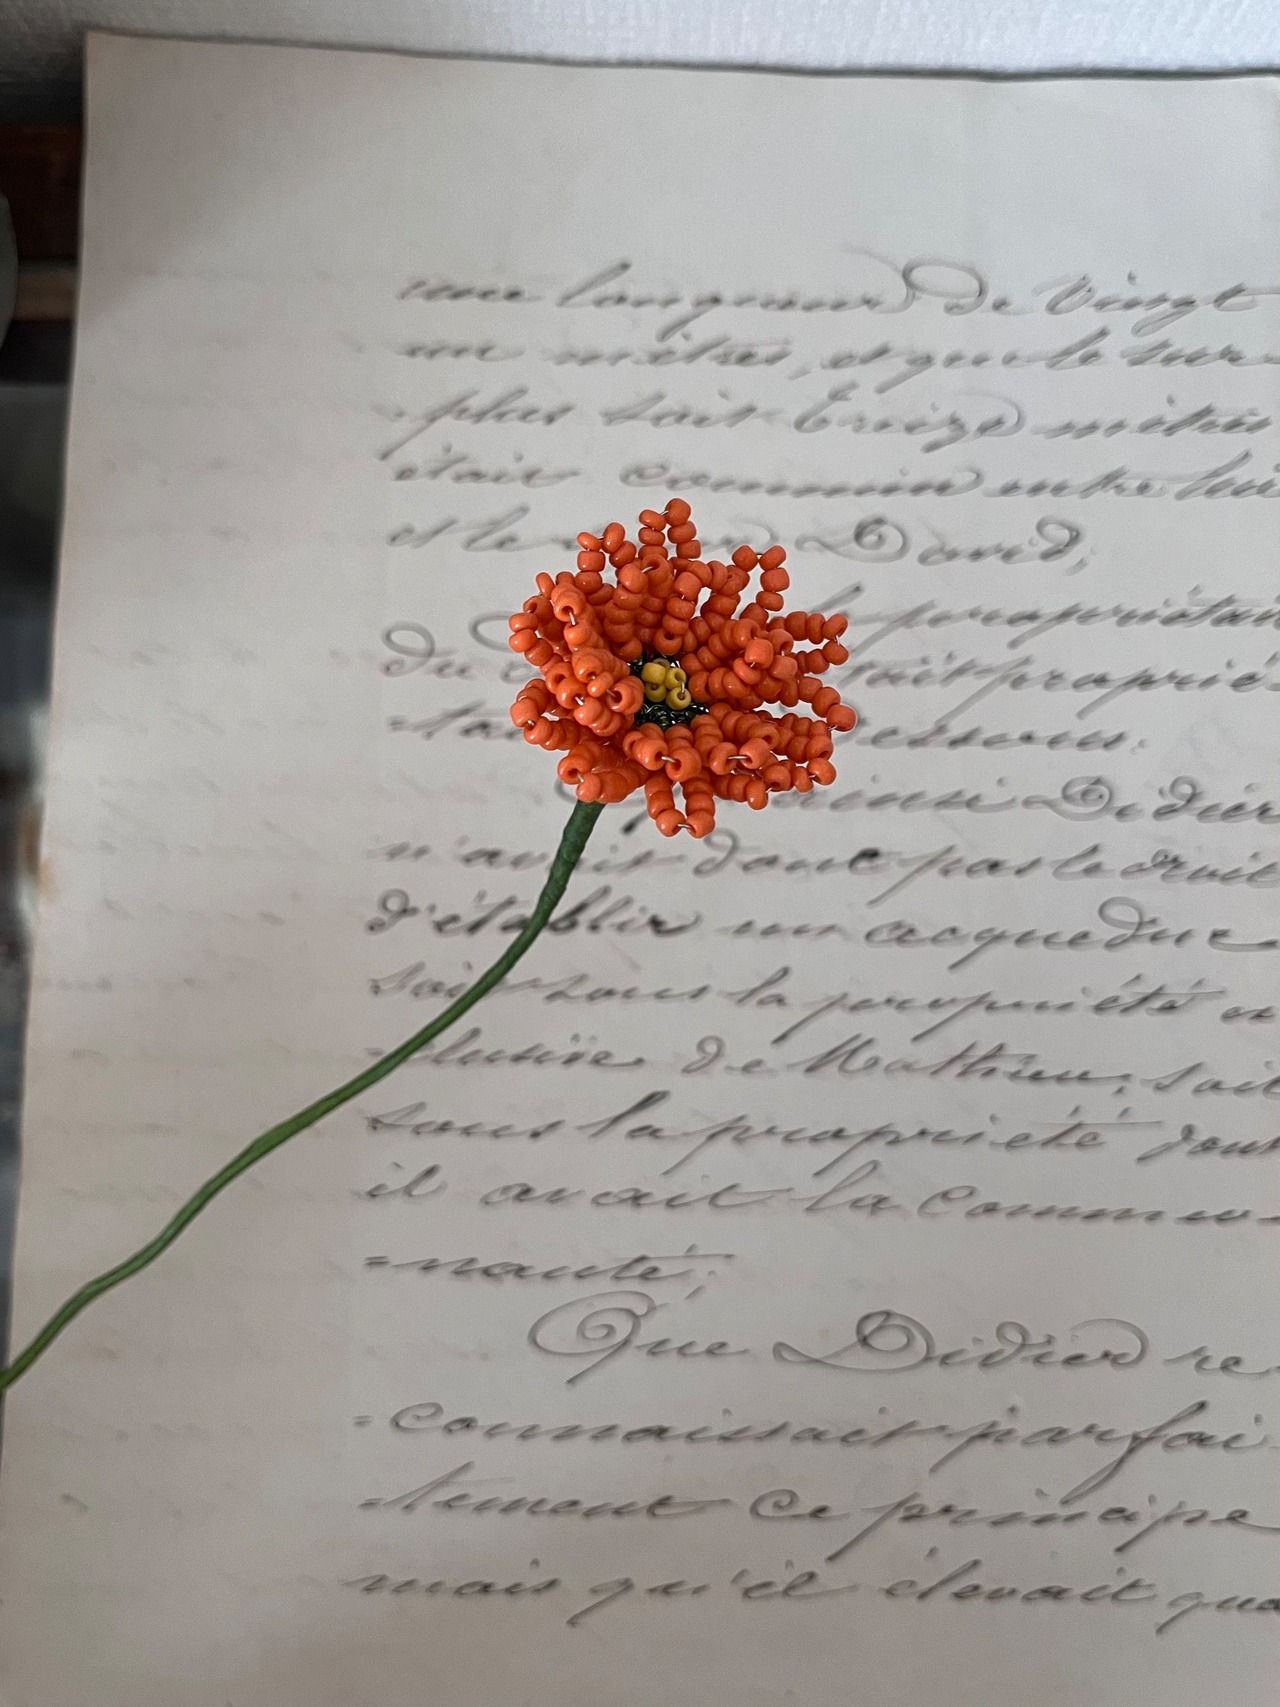 une longueur de vingt
un mètres, et que le sur
-plus soit treize mètres
était commun entre lui
et le David;
le propriétai
du était proprié-
-ta essous.
ainsi Didier
n'avait donc pas le droit
d'établir un acqueduc
soit sous la propriété ex
-clusive de Mathieu, soit
sous la propriété dont
il avait la commu-
-nauté;
Que Didier re
=connaissait parfai-
-tement ce principe
mais qu'il élevait que